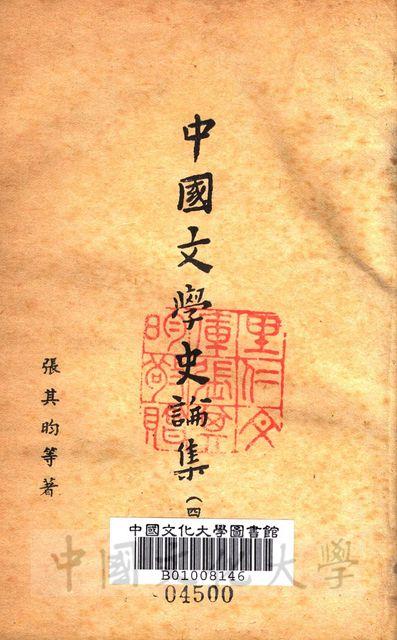 中國文學史論集(四
張其昀等著
里仁文
庫張其
昀敬贈
中國文化大學圖書館
B01008146
04500
中國文化大學